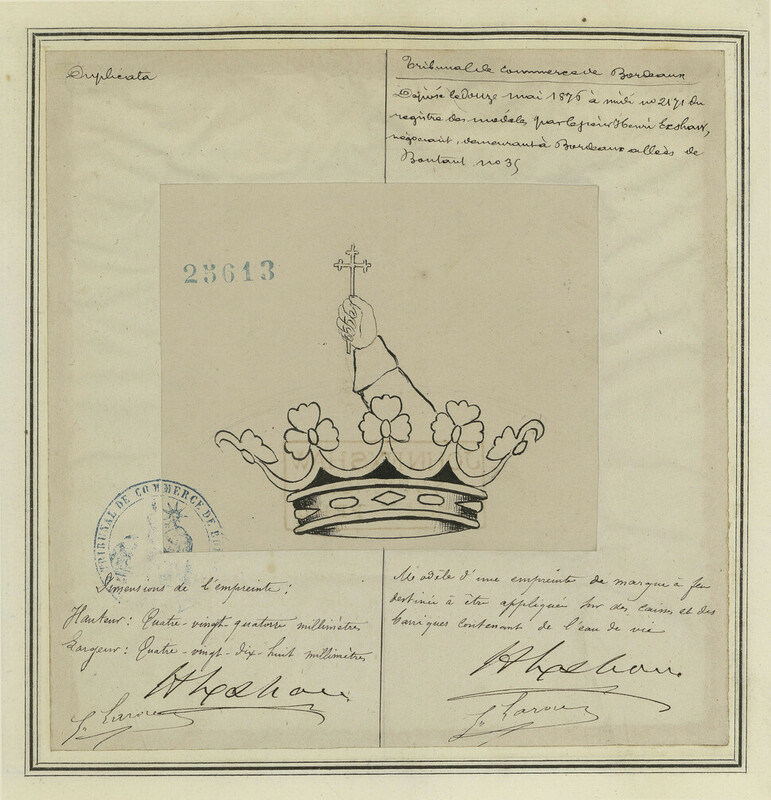 Duplicata
Tribunal de Commerce de Bordeaux
Déposé le douze mai 1876 à midi no 2171 du
registre des modèles par le sieur Henri Exshaw,
négociant, demeurant à Bordeaux allées de
Boutaut no 35
25613
TRIBUNAL DE COMMERCE DE
Dimensions de l'empreinte :
Hauteur : Quatre-vingt-quatorze millimètres
Largeur : Quatre-vingt-dix-huit millimètres
Modèle d'une empreinte de marque à feu
destinée à être appliquée sur des caisses et des
barriques contenant de l'eau de vie
H Exshaw
H Exshaw